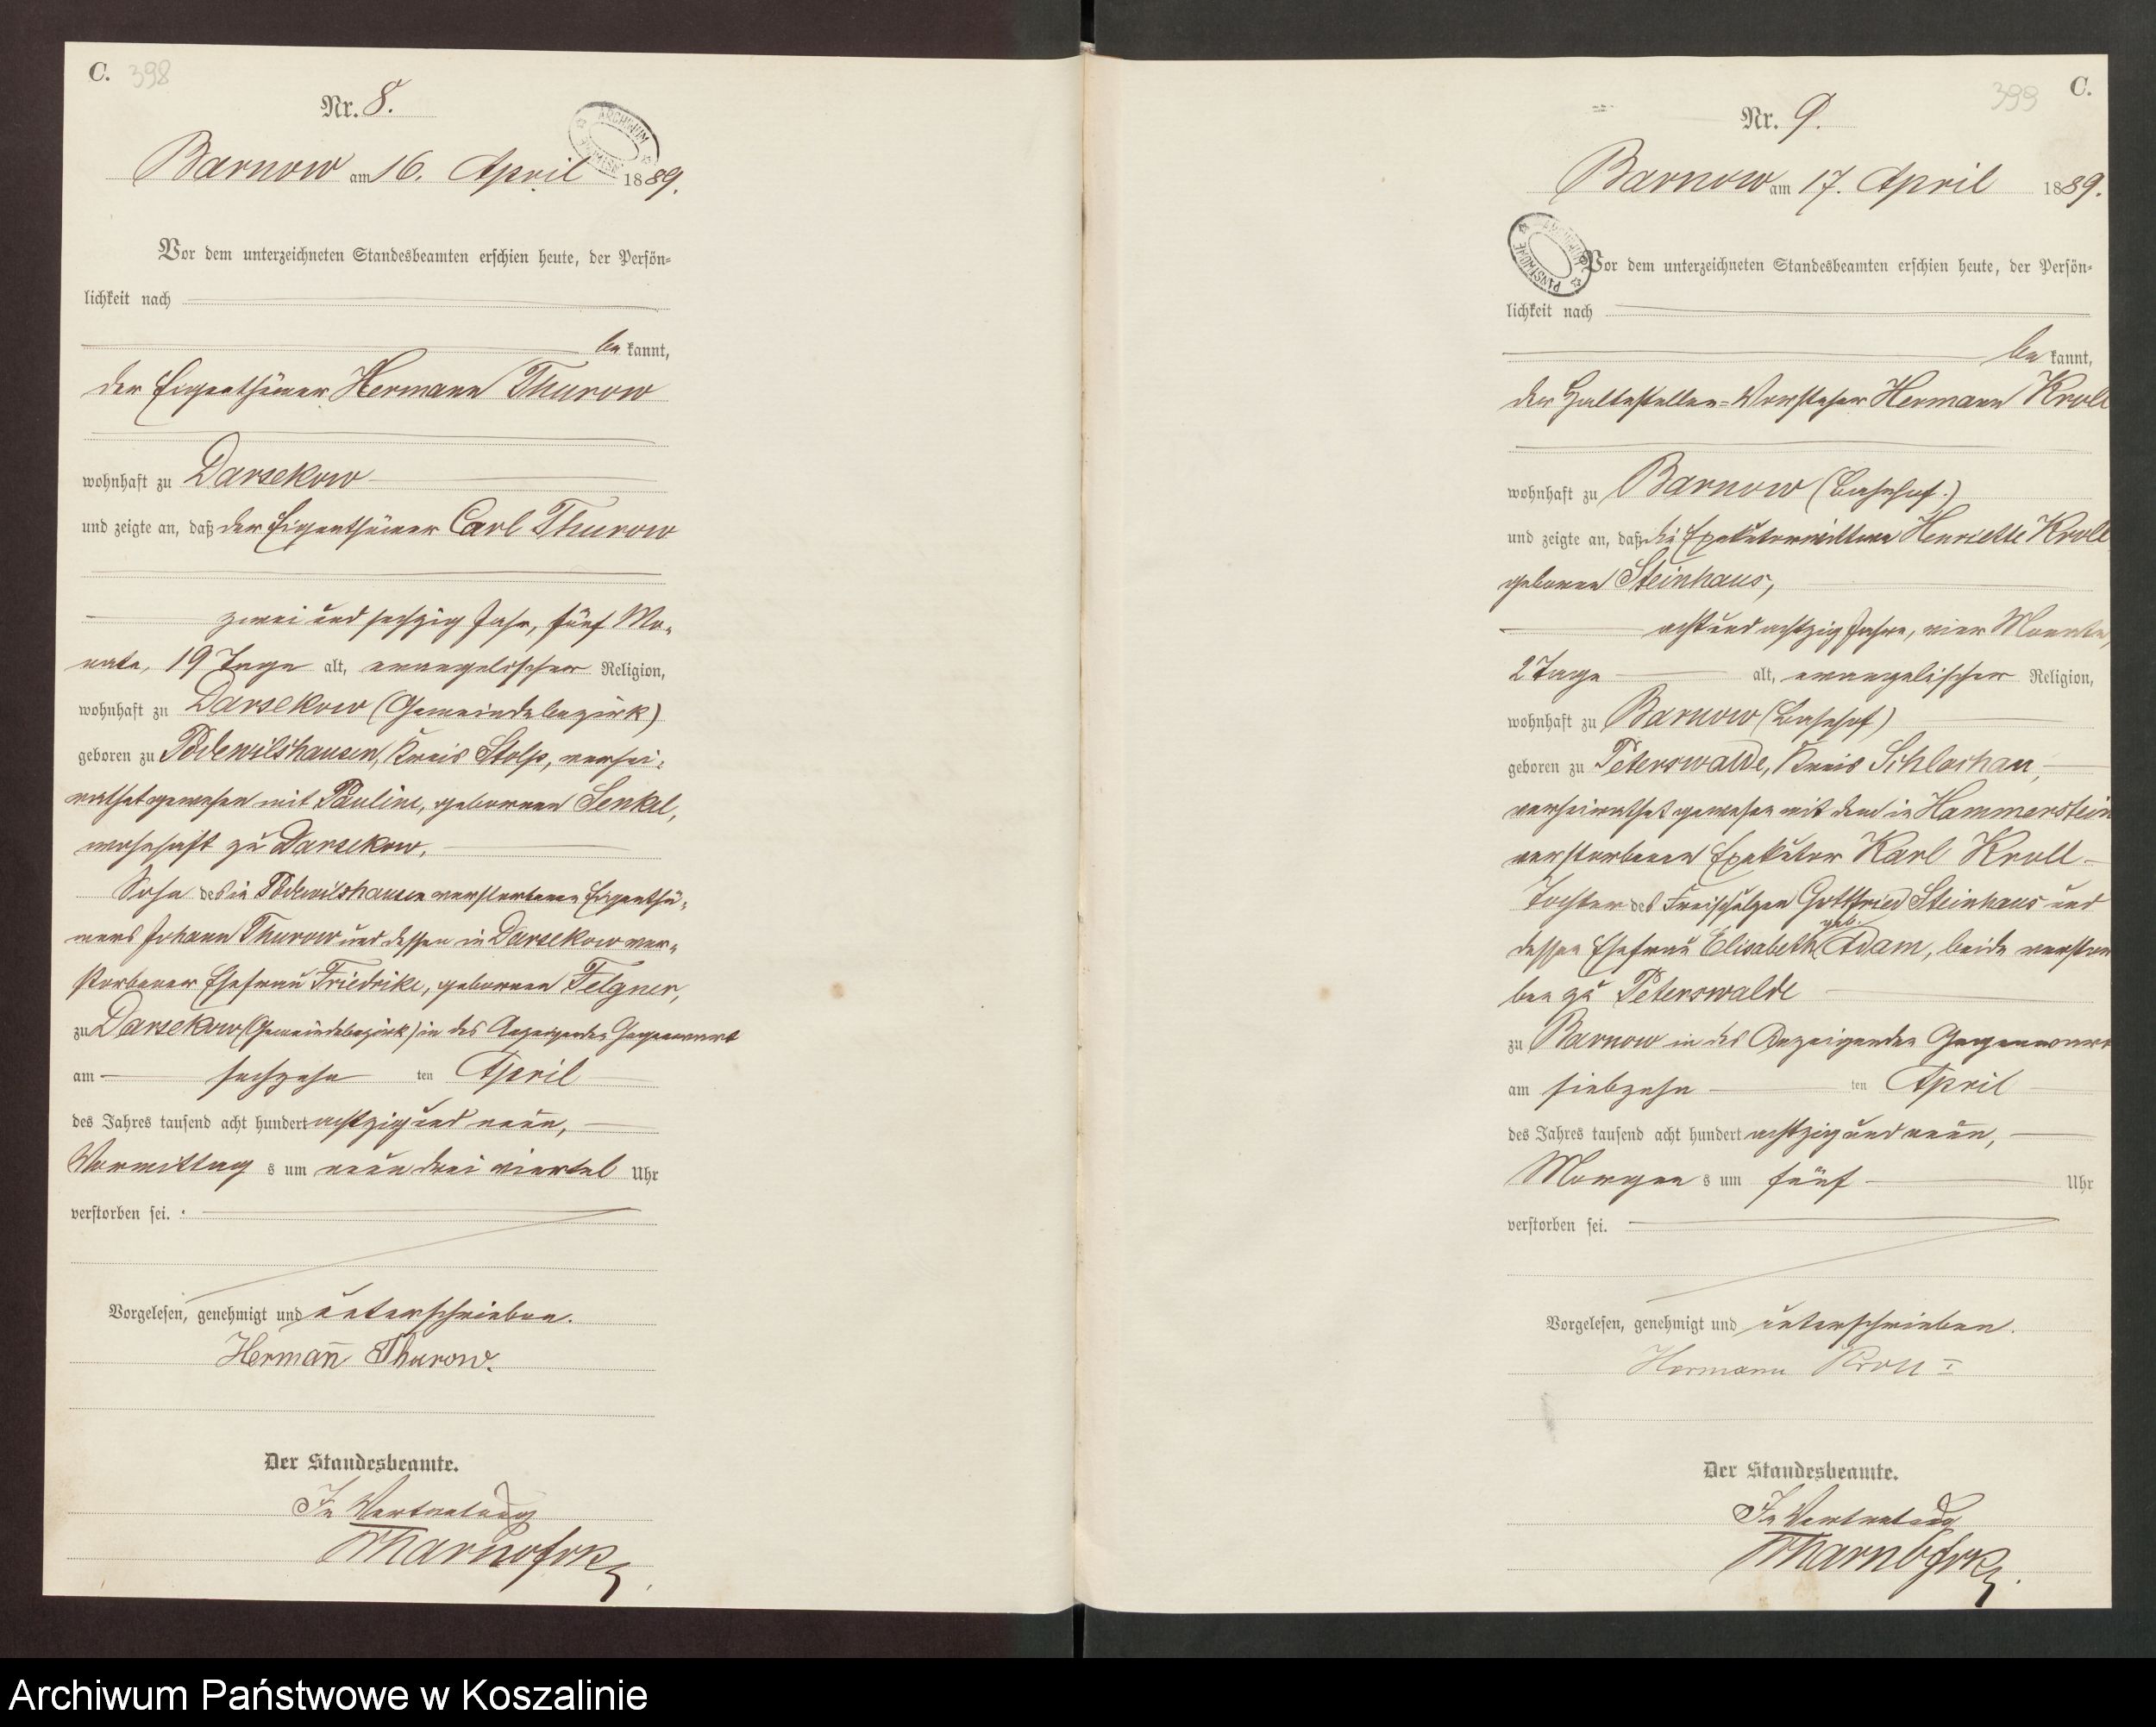 C. 398
Nr. 8.
ARCHIWUM
Barnow am 16. April 1889.
Vor dem unterzeichneten Standesbeamten erschien heute, der Persön-
lichkeit nach
be kannt,
der Eigenthümer Hermann Thurow
wohnhaft zu Darsekow
und zeigte an, daß der Eigenthümer Carl Thurow
zwei und sechzig Jahr, fünf Mo-
nate, 19 Tage alt, evangelischer Religion,
wohnhaft zu Darsekow (Gemeindebezirk)
geboren zu Podewilshausen, Kreis Stolp, verhei-
rathet gewesen mit Pauline, geborenen Senkel,
wohnhaft zu Darsekow,
Sohn des in Podewilshausen verstorbenen Eigenthü-
mers Johann Thurow und dessen in Darsekow ver-
storbener Ehefrau Friedrike, geborenen Felgner,
zu Darsekow (Gemeindebezirk) in des Anzeigenden Gegenwart
am sechzehn ten April
des Jahres tausend acht hundert achtzig und neun,
Vormittag s um neun drei viertel Uhr
verstorben sei.
Vorgelesen, genehmigt und unterschrieben.
Hermañ Thurow.
Der Standesbeamte.
In Vertretung
C. 399
Nr. 9.
Barnow am 17. April 1889.
ARCHIWUM PAŃSTWOWE
Vor dem unterzeichneten Standesbeamten erschien heute, der Persön-
lichkeit nach
be kannt,
der Haltestellen-Vorsteher Hermann Kroll
wohnhaft zu Barnow (Bahnhof.)
und zeigte an, daß die Exekutorwittwe Henriette Kroll
geborene Steinhaus,
acht und achtzig Jahre, vier Monate,
2 Tage alt, evangelischer Religion,
wohnhaft zu Barnow (Bahnhof)
geboren zu Peterswalde, Kreis Schlochau,
verheirathet gewesen mit dem in Hammerstein
verstorbenen Exekutor Karl Kroll
Tochter des Freischulzen Gottfried Steinhaus und
dessen Ehefrau Elisabeth geb. Adam, beide verstor
ben zu Peterswalde
zu Barnow in des Anzeigenden Gegenwart
am siebzehn ten April
des Jahres tausend acht hundert achtzig und neun,
Morgen s um fünf Uhr
verstorben sei.
Vorgelesen, genehmigt und unterschrieben.
Hermann Kroll I
Der Standesbeamte.
In Vertretung
Archiwum Państwowe w Koszalinie